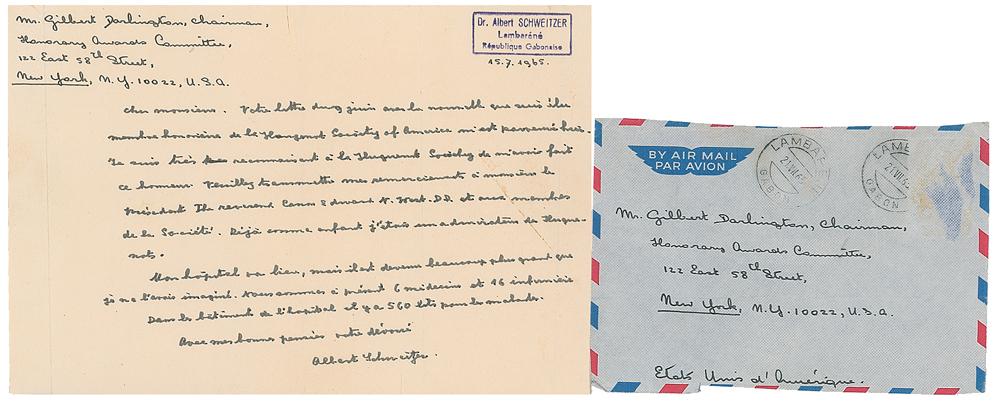 Mr. Gilbert Darlington, Chairman,
Honorary Awards Committee,
122 East 58th Street,
New York, N.Y. 10022, U.S.A.
Dr. Albert SCHWEITZER
Lambaréné
République Gabonaise
15.7.1965.
cher monsieur. Votre lettre du 9 juin avec la nouvelle que suis élu
membre honoraire de la Huguenot Society of America m'est parvenue hier.
Je suis très reconnaissant à la Huguenot Society de m'avoir fait
ce honneur. Veuillez transmettre mes remerciements à monsieur le
président The reverend Canon Edward N. West. DD. et aux membres
de la Société. Déjà comme enfant j'étais un admirateur des Hugue-
nots.
Mon hôpital va bien, mais il est devenu beaucoup plus grand que
je ne l'avais imaginé. Nous sommes à présent 6 médecins et 16 infirmières
Dans les bâtiments de l'hôpital il y a 560 lits pour les malades.
Avec mes bonnes pensées votre dévoué
Albert Schweitzer.
BY AIR MAIL
PAR AVION
LAMBA
GABON
LAMBA
GABON
Mr. Gilbert Darlington, Chairman,
Honorary Awards Committee,
122 East 58th Street,
New York, N.Y. 10022, U.S.A.
Etats Unis d'Amérique.